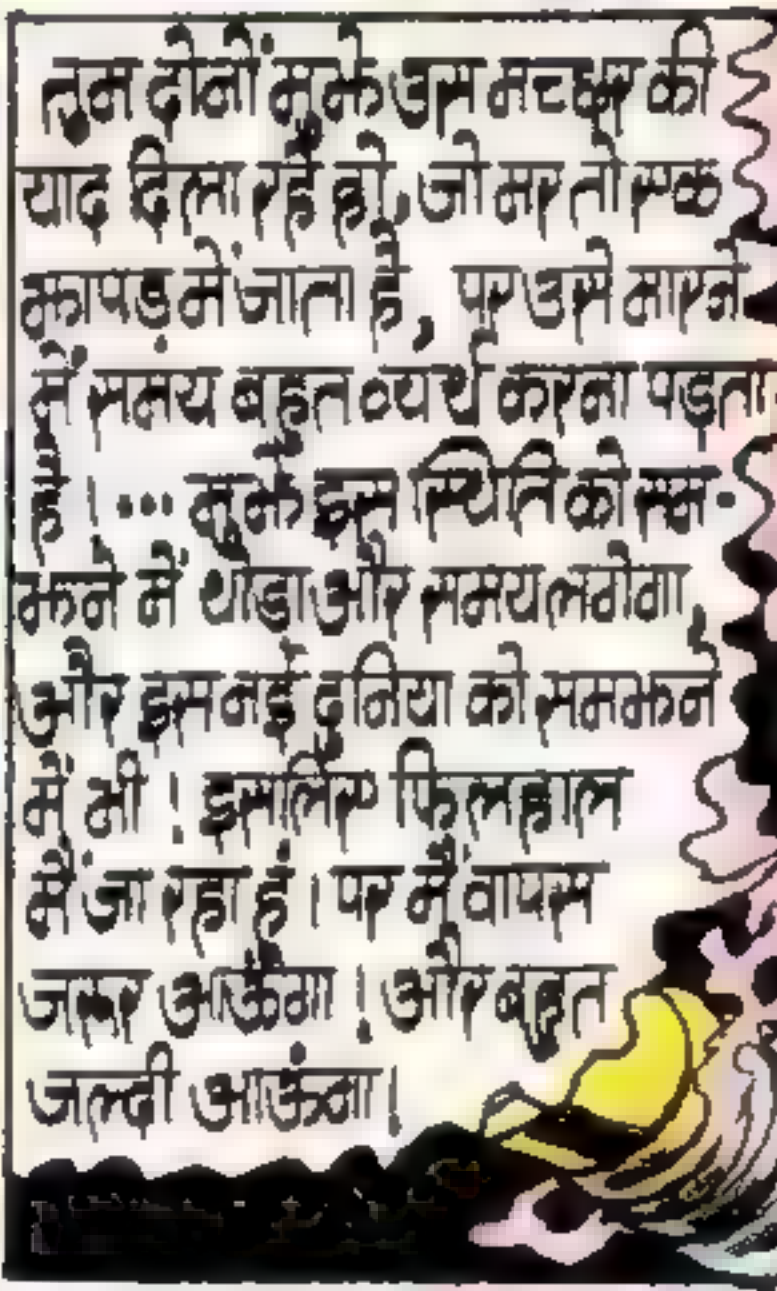 तुम दोनों मुझे उस मच्छर की
याद दिला रहे हो, जो मर तो एक
झापड़ में जाता है, पर उसे मारने
में समय बहुत व्यर्थ करना पड़ता
है।... मुझे इस स्थिति को सम-
झने में थोड़ा और समय लगेगा,
और इस नई दुनिया को समझने
में भी! इसलिए फिलहाल
मैं जा रहा हूं। पर मैं वापस
जरूर आऊंगा! और बहुत
जल्दी आऊंगा!